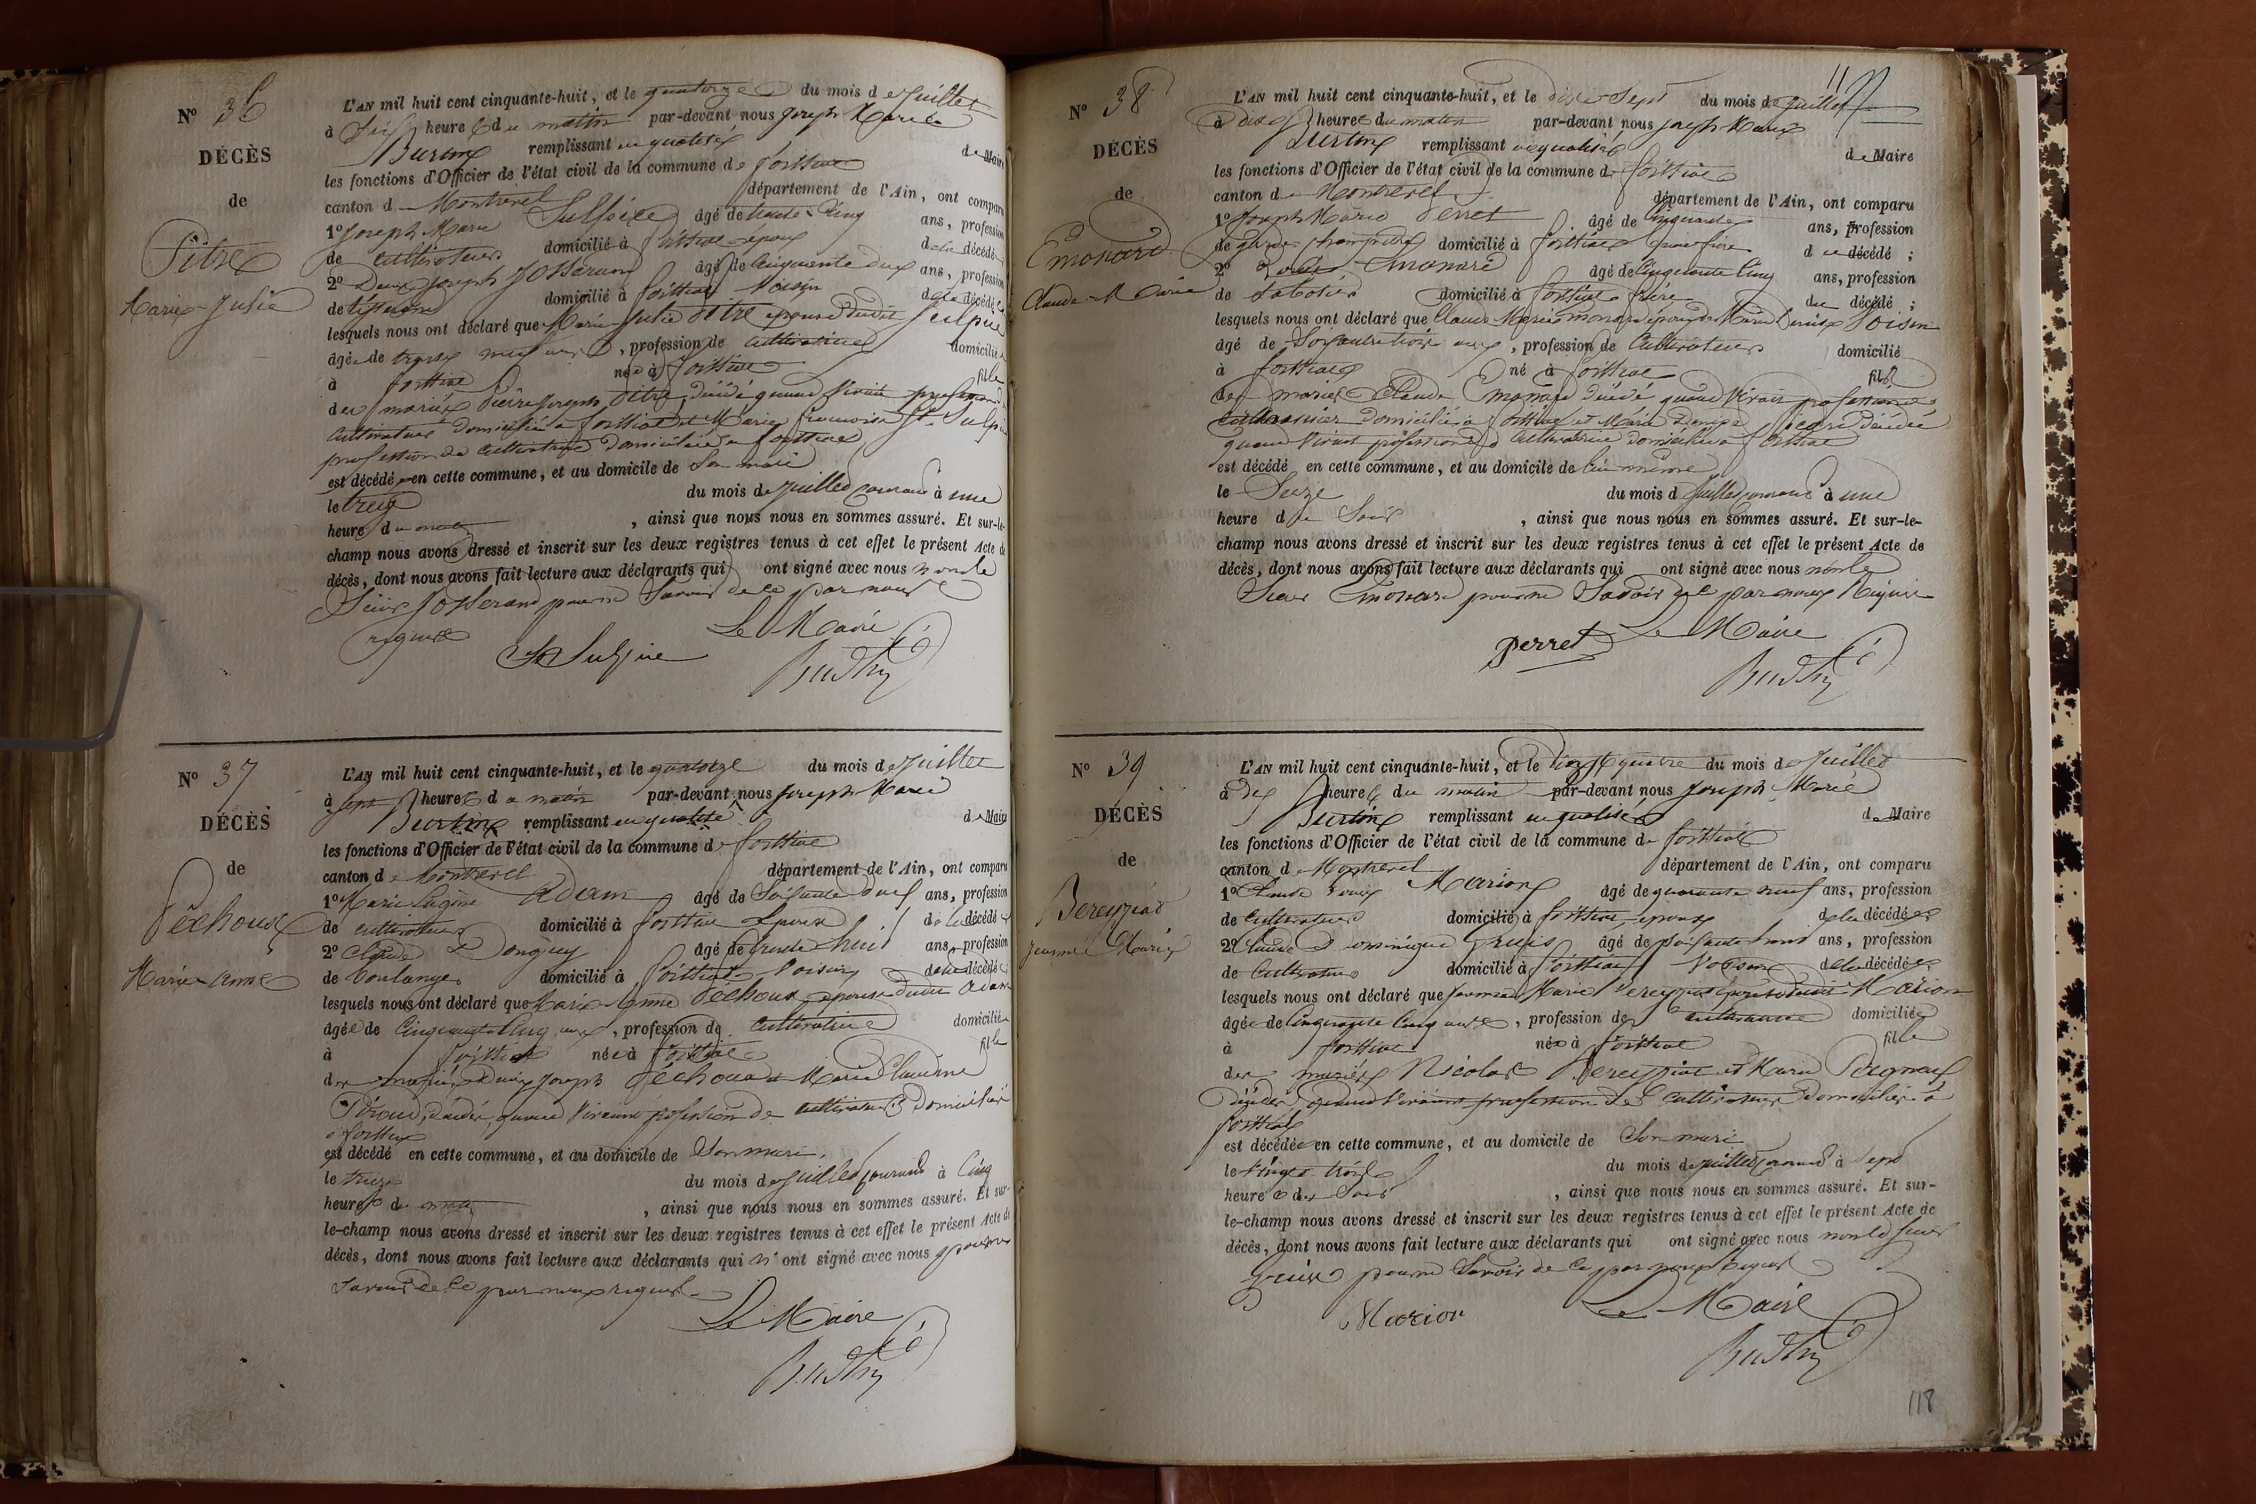 N° 36
DÉCÈS
de
Pitre
Marie Julie
L'AN mil huit cent cinquante-huit, et le quatorze du mois de Juillet
à Six heures du matin par-devant nous Joseph Marie
remplissant en qualité de Maire
les fonctions d'Officier de l'état civil de la commune de foissiat
canton de Montrevel département de l'Ain, ont comparu
1° Joseph Marie Sulpice âgé de trente Cinq ans, profession
de cultivateur domicilié à foissiat époux de la décédée
2° Joseph Josserand âgé de Cinquante deux ans, profession
de tisserand domicilié à foissiat Voisin de la décédée
lesquels nous ont déclaré que Marie Julie Pitre épouse dudit Sulpice
âgée de trente neuf ans, profession de cultivatrice domiciliée
à foissiat née à foissiat fille
des mariés Pierre Joseph Pitre décédé quand vivait profession de
cultivateur domicilié à foissiat et Marie françoise St Sulpice
profession de cultivatrice domiciliée à foissiat
est décédée en cette commune, et au domicile de Son mari
le treize du mois de Juillet courant à une
heure du , ainsi que nous nous en sommes assuré. Et sur-le-
champ nous avons dressé et inscrit sur les deux registres tenus à cet effet le présent Acte de
décès, dont nous avons fait lecture aux déclarants qui ont signé avec nous non le
Sieur Josserand pour ne Savoir de ce par nous
requis
St Sulpice
Le Maire
N° 37
DÉCÈS
de
Péchoux
Marie Anne
L'AN mil huit cent cinquante-huit, et le quatorze du mois de Juillet
à Sept heures du matin par-devant nous Joseph Marie
remplissant en qualité de Maire
les fonctions d'Officier de l'état civil de la commune de foissiat
canton de Montrevel département de l'Ain, ont comparu
1° Marie Adam âgé de Soixante deux ans, profession
de cultivateur domicilié à foissiat époux de la décédée
2° Claude Donguy âgé de trente huit ans, profession
de boulanger domicilié à foissiat Voisin de la décédée
lesquels nous ont déclaré que Marie Anne Péchoux épouse dudit Adam
âgée de Cinquante Cinq ans, profession de cultivatrice domiciliée
à foissiat née à foissiat fille
des mariés Joseph Péchoux et Marie Claudine
décédés quand vivaient profession de cultivateurs domiciliés
à foissiat
est décédé en cette commune, et au domicile de Son mari
le treize du mois de Juillet courant à Cinq
heures du , ainsi que nous nous en sommes assuré. Et sur-
le-champ nous avons dressé et inscrit sur les deux registres tenus à cet effet le présent Acte de
décès, dont nous avons fait lecture aux déclarants qui n'ont signé avec nous pour ne
Savoir de ce par nous requis
Le Maire
117
N° 38
DÉCÈS
de
Emonard
Claude Marie
L'AN mil huit cent cinquante-huit, et le dix Sept du mois de Juillet
à dix heures du matin par-devant nous Joseph Marie
remplissant en qualité de Maire
les fonctions d'Officier de l'état civil de la commune de foissiat
canton de Montrevel département de l'Ain, ont comparu
1° Joseph Marie Perret âgé de Cinquante ans, profession
de garde champêtre domicilié à foissiat beau frère du décédé ;
2° Emonard âgé de Cinquante Cinq ans, profession
de Sabotier domicilié à foissiat frère du décédé ;
lesquels nous ont déclaré que Claude Marie Emonard époux de Marie Denise Voisin
âgé de Soixante trois ans, profession de Cultivateur domicilié
à foissiat né à foissiat fils
des mariés Claude Emonard décédé quand vivait profession de
domicilié à foissiat et Marie Denise décédée
quand vivait profession de Cultivatrice domiciliée à foissiat
est décédé en cette commune, et au domicile de lui même
le Seize du mois de Juillet courant à une
heure du Soir , ainsi que nous nous en sommes assuré. Et sur-le-
champ nous avons dressé et inscrit sur les deux registres tenus à cet effet le présent Acte de
décès, dont nous avons fait lecture aux déclarants qui ont signé avec nous non le
Sieur Emonard pour ne Savoir de ce par nous Requis
perret
Le Maire
N° 39
DÉCÈS
de
Bereyziat
Jeanne Marie
L'AN mil huit cent cinquante-huit, et le Vingt quatre du mois de Juillet
à dix heures du matin par-devant nous Joseph Marie
remplissant en qualité de Maire
les fonctions d'Officier de l'état civil de la commune de foissiat
canton de Montrevel département de l'Ain, ont comparu
1° Claude Louis Marion âgé de quarante neuf ans, profession
de Cultivateur domicilié à foissiat époux de la décédée
2° Claude Dominique âgé de Soixante ans, profession
de Cultivateur domicilié à foissiat Voisin de la décédée
lesquels nous ont déclaré que Jeanne Marie Bereyziat épouse dudit Marion
âgée de Cinquante Cinq ans, profession de cultivatrice domiciliée
à foissiat née à foissiat fille
des mariés Nicolas Bereyziat et Marie
décédés quand vivaient profession de Cultivateurs domiciliés à
foissiat
est décédée en cette commune, et au domicile de Son mari
le Vingt trois du mois de Juillet courant à Sept
heures du Soir , ainsi que nous nous en sommes assuré. Et sur-
le-champ nous avons dressé et inscrit sur les deux registres tenus à cet effet le présent Acte de
décès, dont nous avons fait lecture aux déclarants qui ont signé avec nous non le Sieur
pour ne Savoir de ce par nous Requis
Marion
Le Maire
118